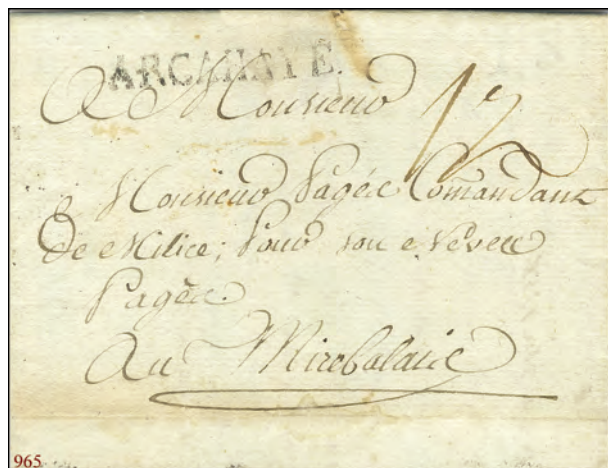 ARCAHAYE
A Monsieur 12
Monsieur Pagés Comandant
de Milice; Pour son Neveu
Pagés.
Au Mirebalais
965